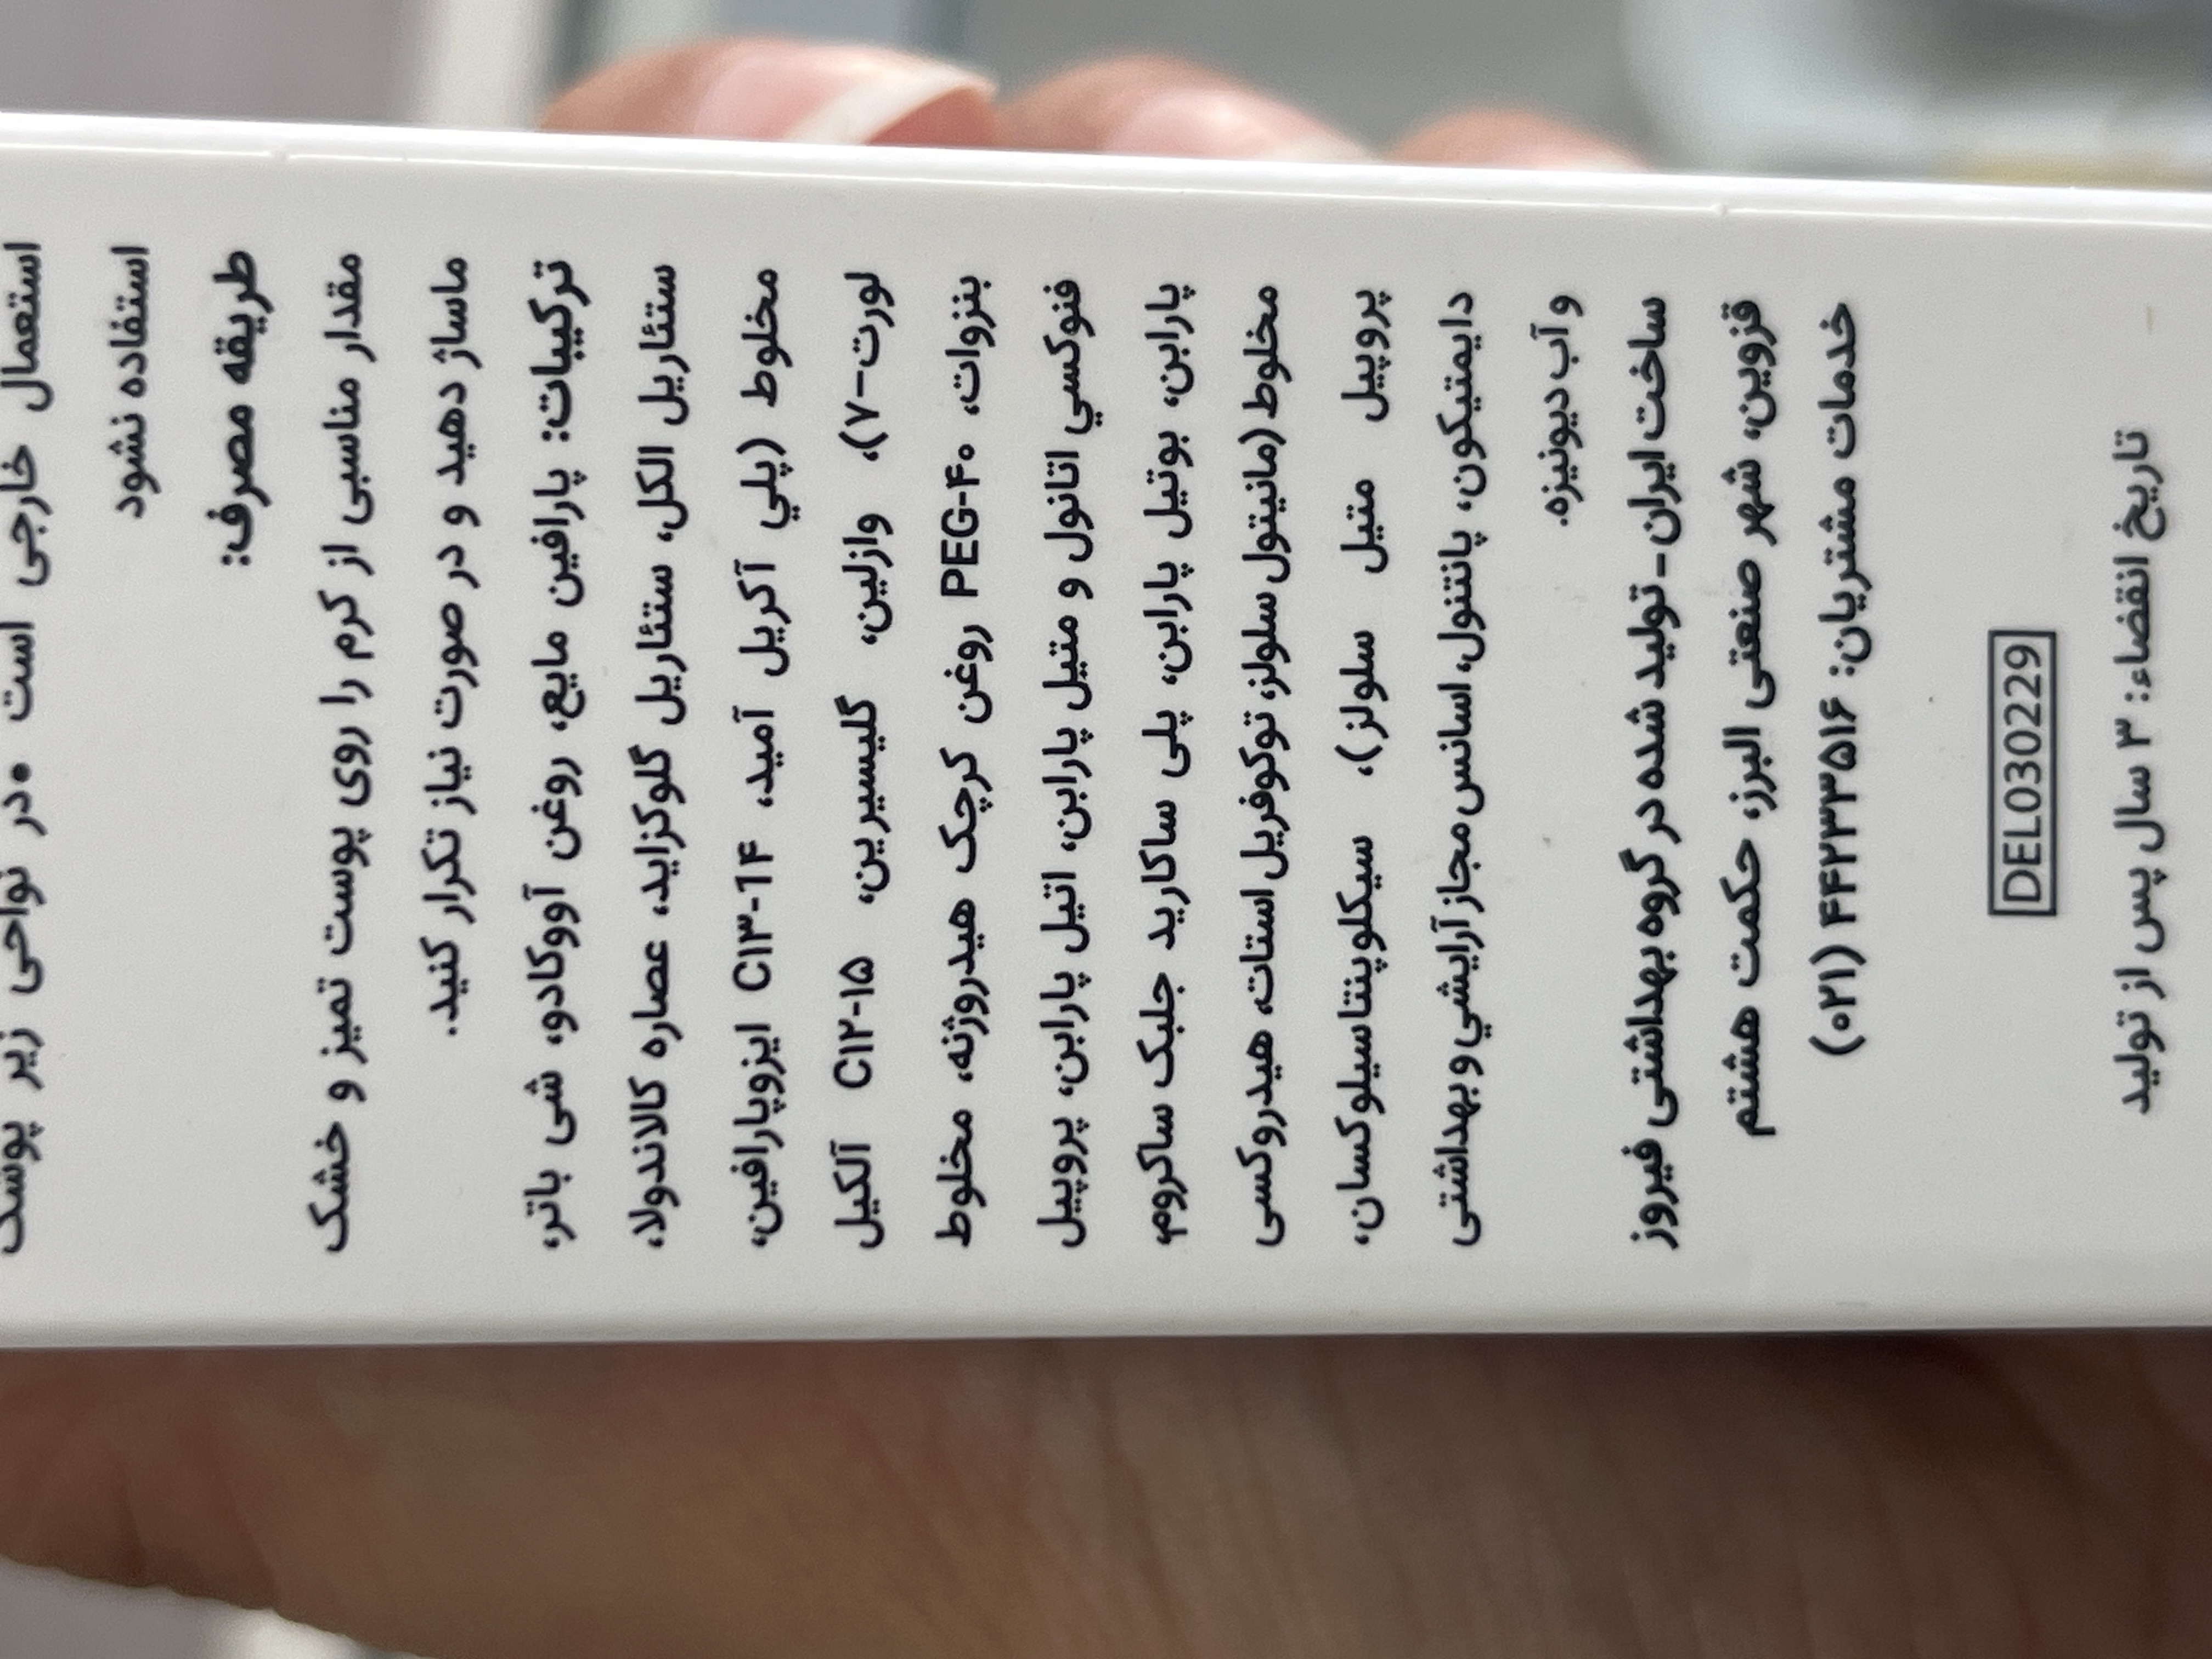 استعمال خارجی است •در نواحی زیر پوشک
استفاده نشود
طریقه مصرف:
مقدار مناسبی از کرم را روی پوست تمیز و خشک
ماساژ دهید و در صورت نیاز تکرار کنید.
ترکیبات: پارافین مایع، روغن آووکادو، شی باتر،
ستئاریل الکل، ستئاریل گلوکزاید، عصاره کالاندولا،
مخلوط (پلي آکریل آمید، C۱۳-۱۴ ایزوپارافین،
لورت-۷)، وازلین، گلیسیرین، C۱۲-۱۵ آلکیل
بنزوات، PEG-۴۰ روغن کرچک هیدروژنه، مخلوط
فنوکسي اتانول و متیل پارابن، اتیل پارابن، پروپیل
پارابن، بوتیل پارابن، پلی ساکارید جلبک ساکروم،
مخلوط (مانیتول سلولز، توکوفریل استات، هیدروکسی
پروپیل متیل سلولز)، سیکلوپنتاسیلوکسان،
دایمتیکون، پانتنول، اسانس مجاز آرایشي و بهداشتی
و آب دیونیزه.
ساخت ایران- تولید شده در گروه بهداشتی فیروز
قزوین، شهر صنعتی البرز، حکمت هشتم
خدمات مشتریان: ۴۴۲۳۳۵۱۶ (۰۲۱)
DEL030229
تاریخ انقضاء: ۳ سال پس از تولید